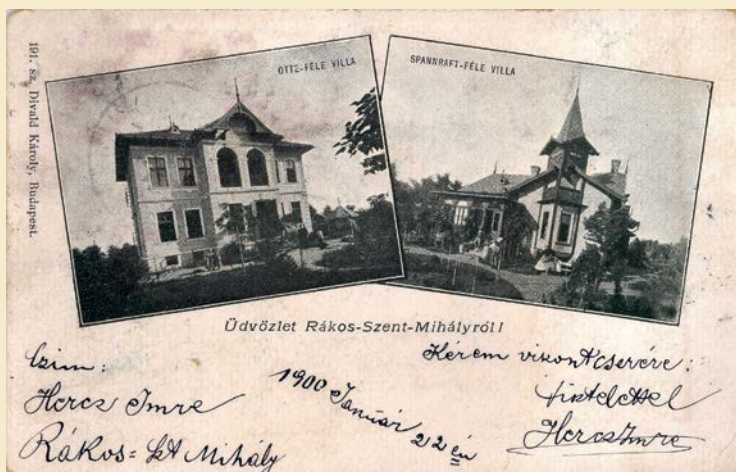 191. sz. Divald Károly, Budapest.
OTTE-FÉLE VILLA
SPANNRAFT-FÉLE VILLA
Üdvözlet Rákos-Szent-Mihályról!
Czim:
Hercz Imre
Rákos=Szt Mihály
1900 Január
22 én
Kérem viszont cserére:
tisztelettel
Hercz Imre